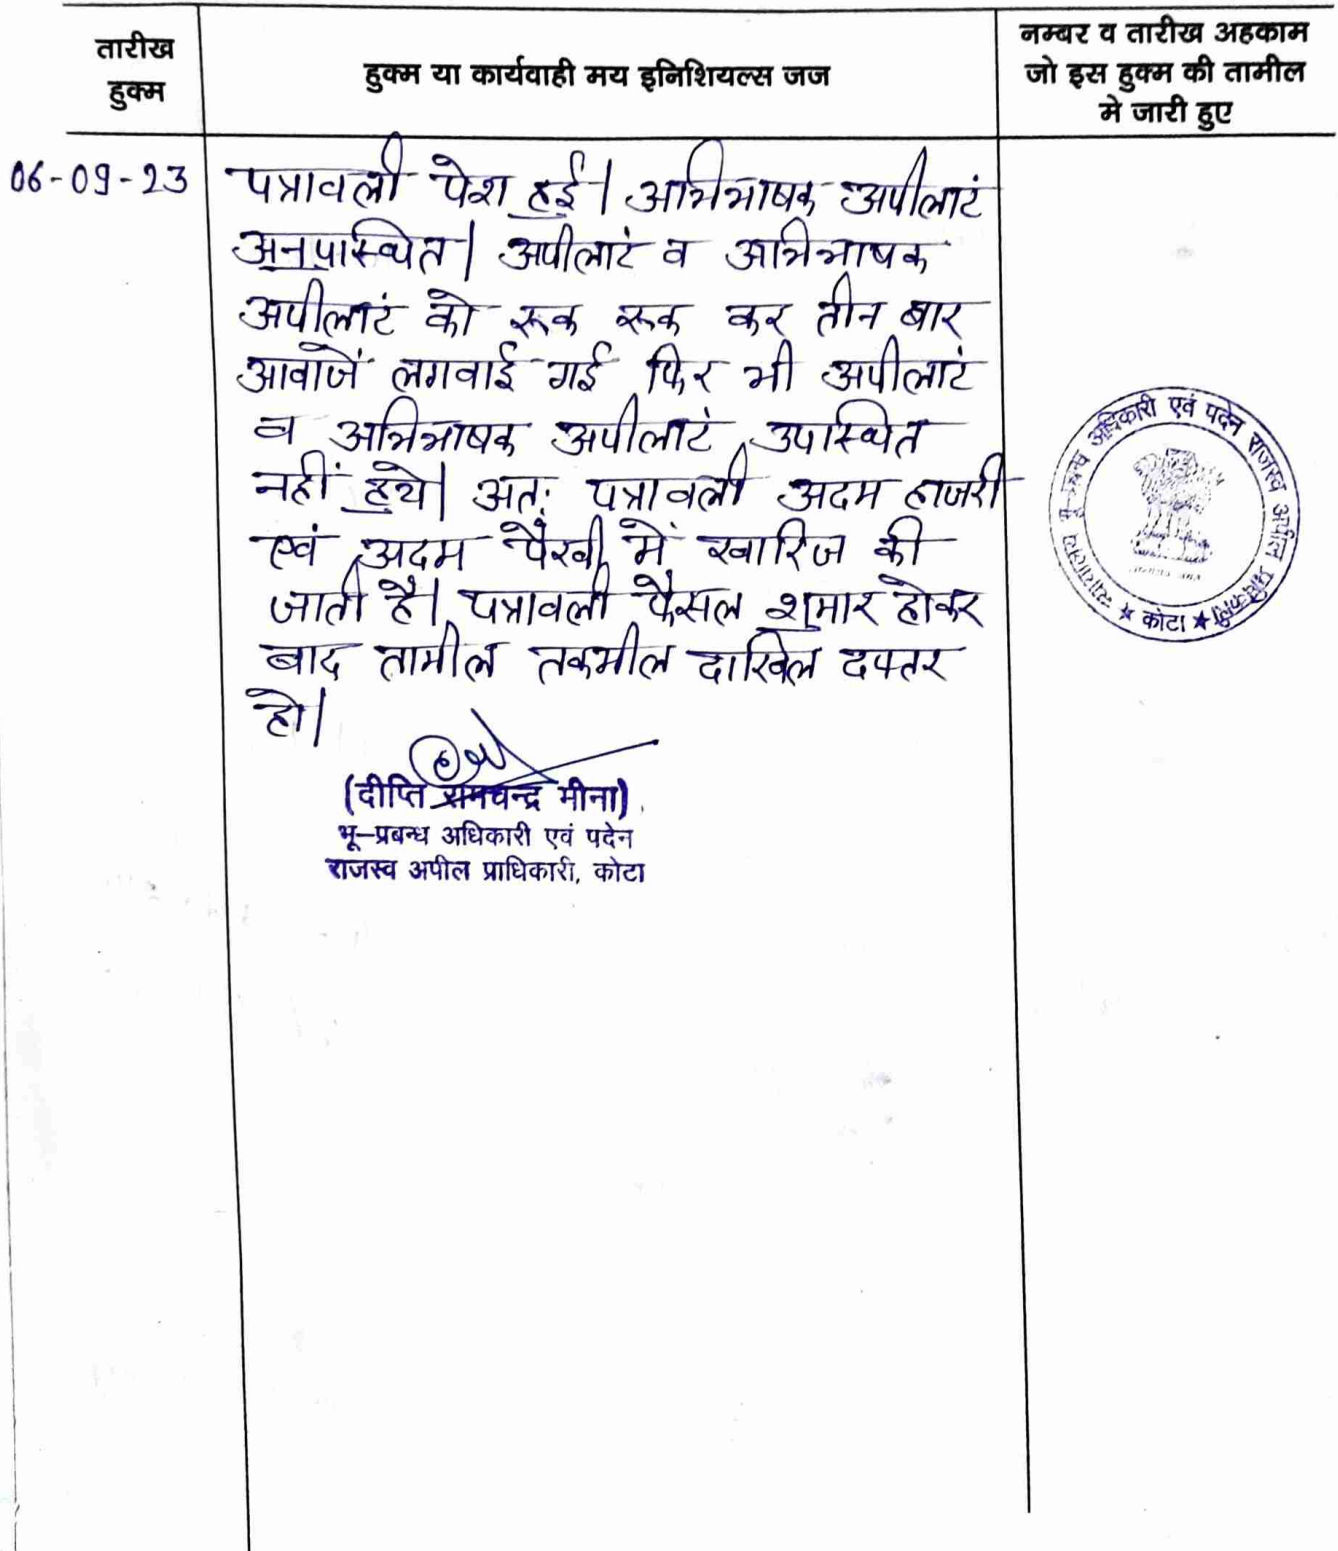 तारीख
हुक्म
हुक्म या कार्यवाही मय इनिशियल्स जज
नम्बर व तारीख अहकाम
जो इस हुक्म की तामील
मे जारी हुए
06-09-23
पत्रावली पेश हुई। अभिभाषक अपीलांट
अनुपस्थित। अपीलांट व अभिभाषक
अपीलांट को रूक रूक कर तीन बार
आवाजें लगवाई गई फिर भी अपीलांट
व अभिभाषक अपीलांट उपस्थित
नहीं हुये। अतः पत्रावली अदम हाजरी
एवं अदम पैरवी में खारिज की
जाती है। पत्रावली फैसल शुमार होकर
बाद तामील तकमील दाखिल दफ्तर
हो।
(दीप्ति रामचन्द्र मीना)
भू-प्रबन्ध अधिकारी एवं पदेन
राजस्व अपील प्राधिकारी, कोटा
न्यायालय भू-प्रबन्ध अधिकारी एवं पदेन राजस्व अपील प्राधिकारी
★ कोटा ★